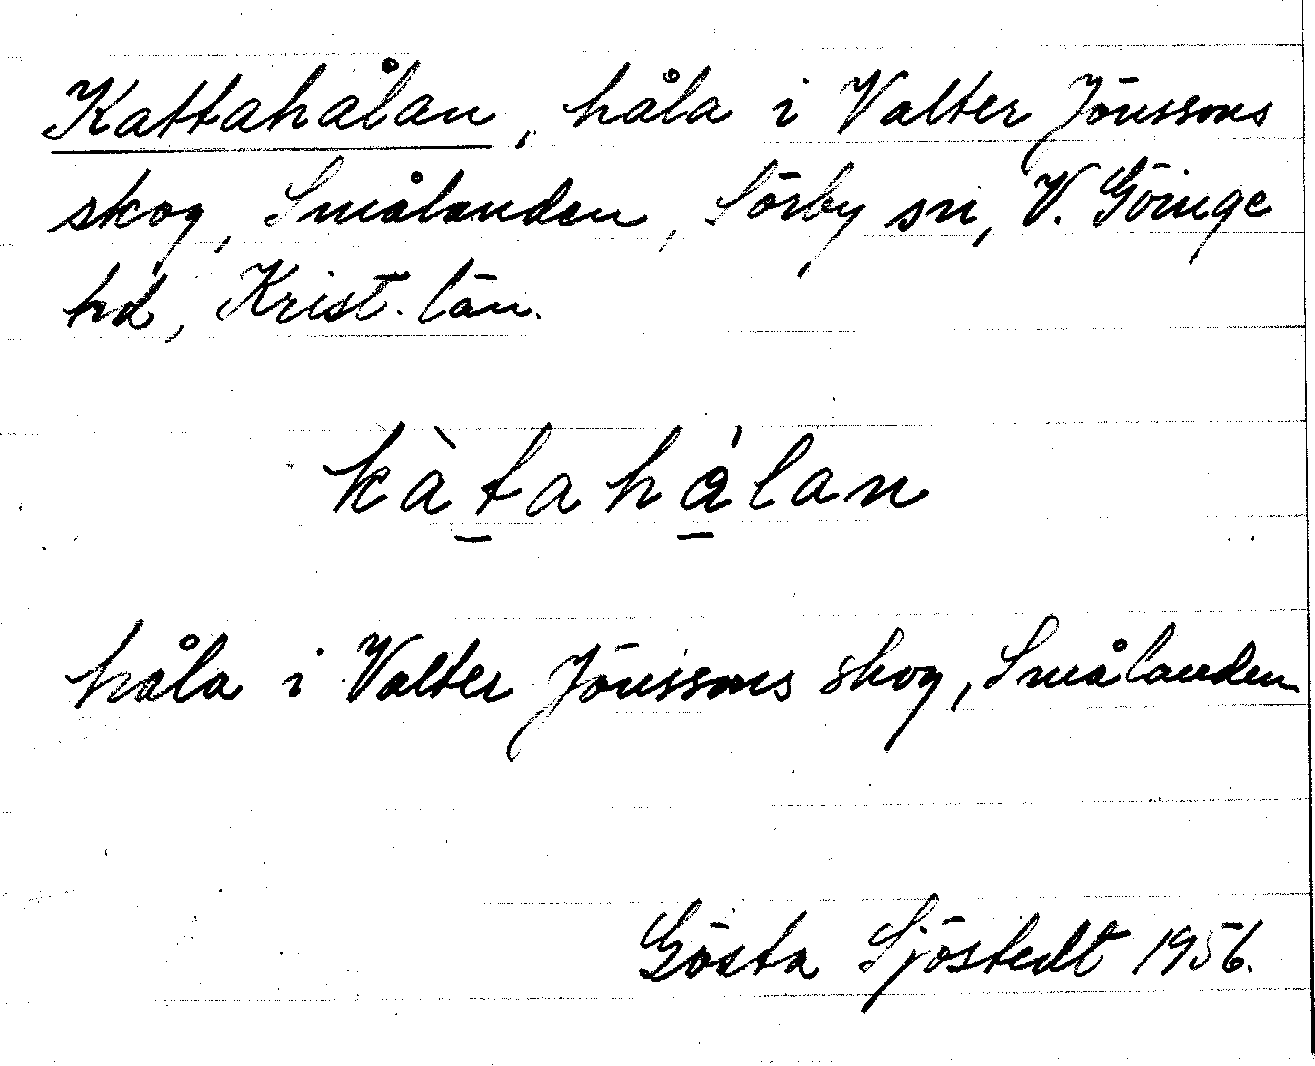 Kattahålan, håla i Valter Jönssons
skog, Smålanden, Sörby sn, V. Göinge
hd, Krist. län.
kàt̲ahá̲lan
håla i Valter Jönssons skog, Smålanden
Gösta Sjöstedt 1956.